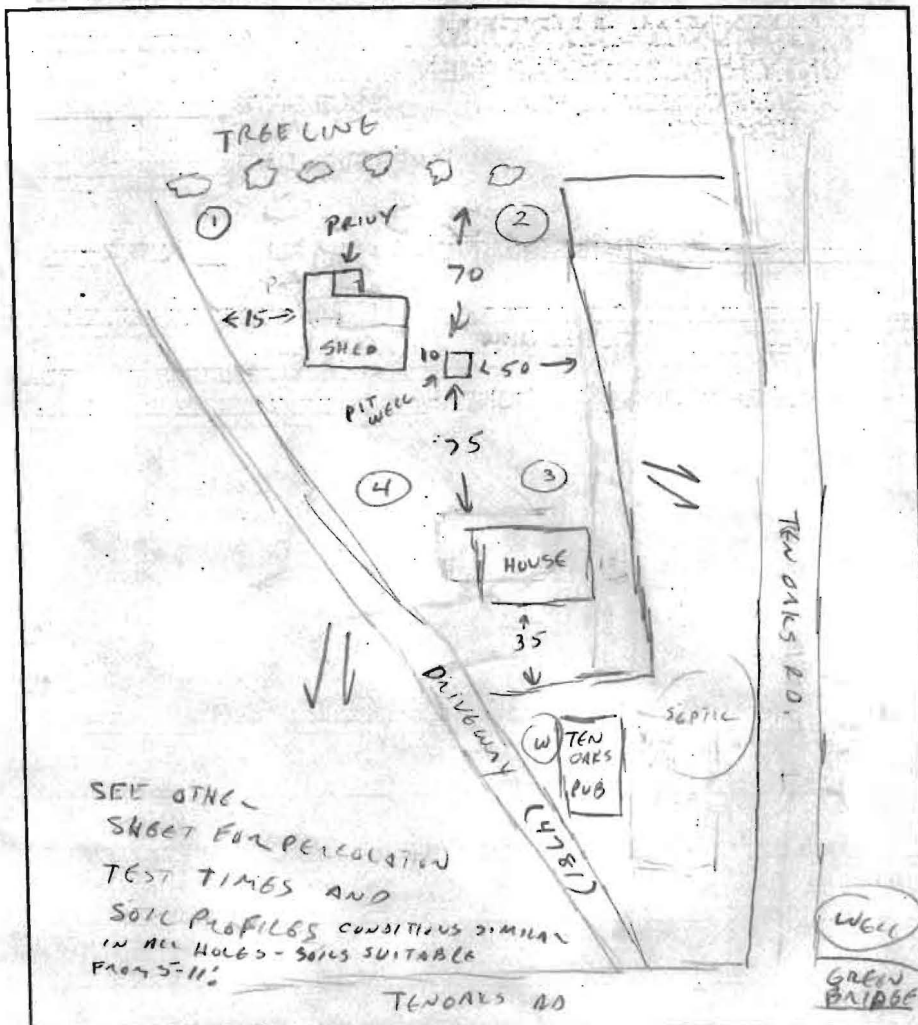 TREE LINE
1
PRIVY
2
70
<15→
SHED
10
<50→
PIT
WELL
75
4
3
HOUSE
35
DRIVEWAY
(4781)
W
TEN
OAKS
PUB
SEPTIC
TEN OAKS RD.
SEE OTHER
SHEET FOR PERCOLATION
TEST TIMES AND
SOIL PROFILES CONDITIONS SIMILAR
IN ALL HOLES - SOILS SUITABLE
FROM 5-11'
TEN OAKS RD
WELL
GREEN
BRIDGE